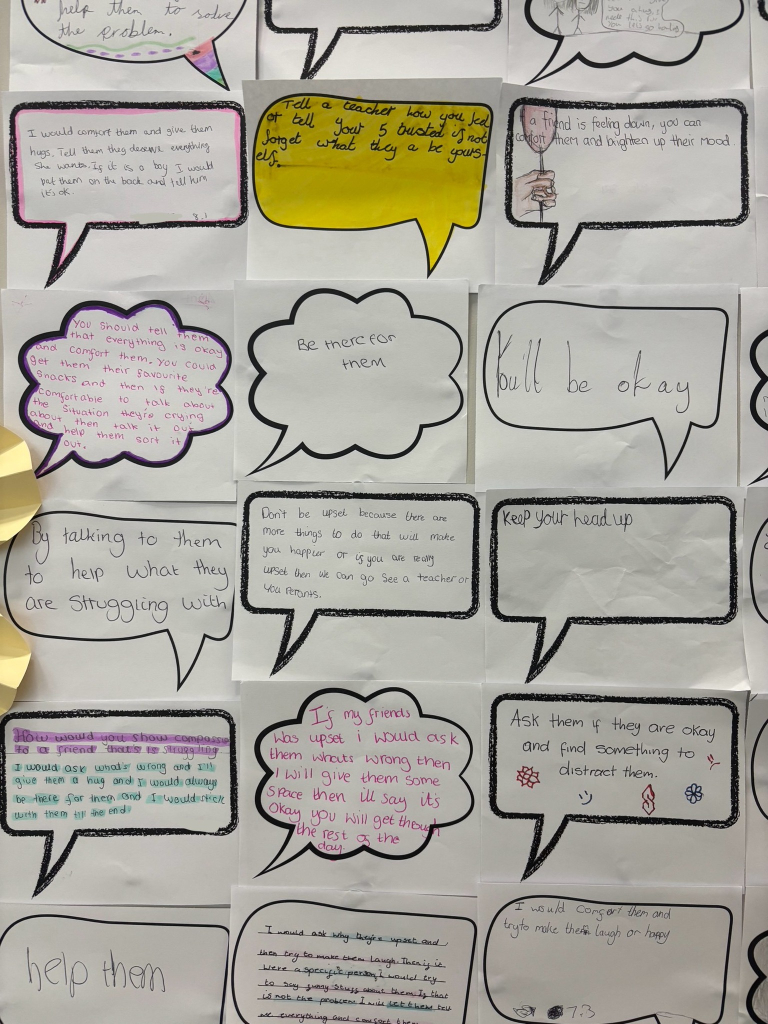 help them to solve
the problem.
I would comfort them and give them
hugs. Tell them they deserve everything
She wants. If it is a boy I would
pat them on the back and tell him
it's ok.
Tell a teacher how you feel
or tell your 5 trusted if not
forget what they a be yours-
elf.
a friend is feeling down, you can
comfort them and brighten up their mood.
You should tell them
that everything is okay
and comfort them. You could
get them their favourite
snacks and then if they're
comfortable to talk about
the situation they're crying
about then talk it out
and help them sort it
out.
Be there for
them
You'll be okay
By talking to them
to help what they
are struggling with
Don't be upset because there are
more things to do that will make
you happier or if you are really
upset then we can go see a teacher or
you perants.
Keep your head up
How would you show compassion
to a friend that's is struggling
I would ask what's wrong and I'll
give them a hug and I would always
be there for them and I would stick
with them till the end
If my friends
was upset i would ask
them whats wrong then
I will give them some
space then ill say its
okay you will get though
the rest of the
day.
Ask them if they are okay
and find something to
distract them.
help them
I would ask why they're upset and
then try to make them laugh. Then if it
were a specific person I would try
to say funny stuff about them. If that
is not the problem I will let them tell
me everything and comfort them
I would comfort them and
try to make them laugh or happy
7.3